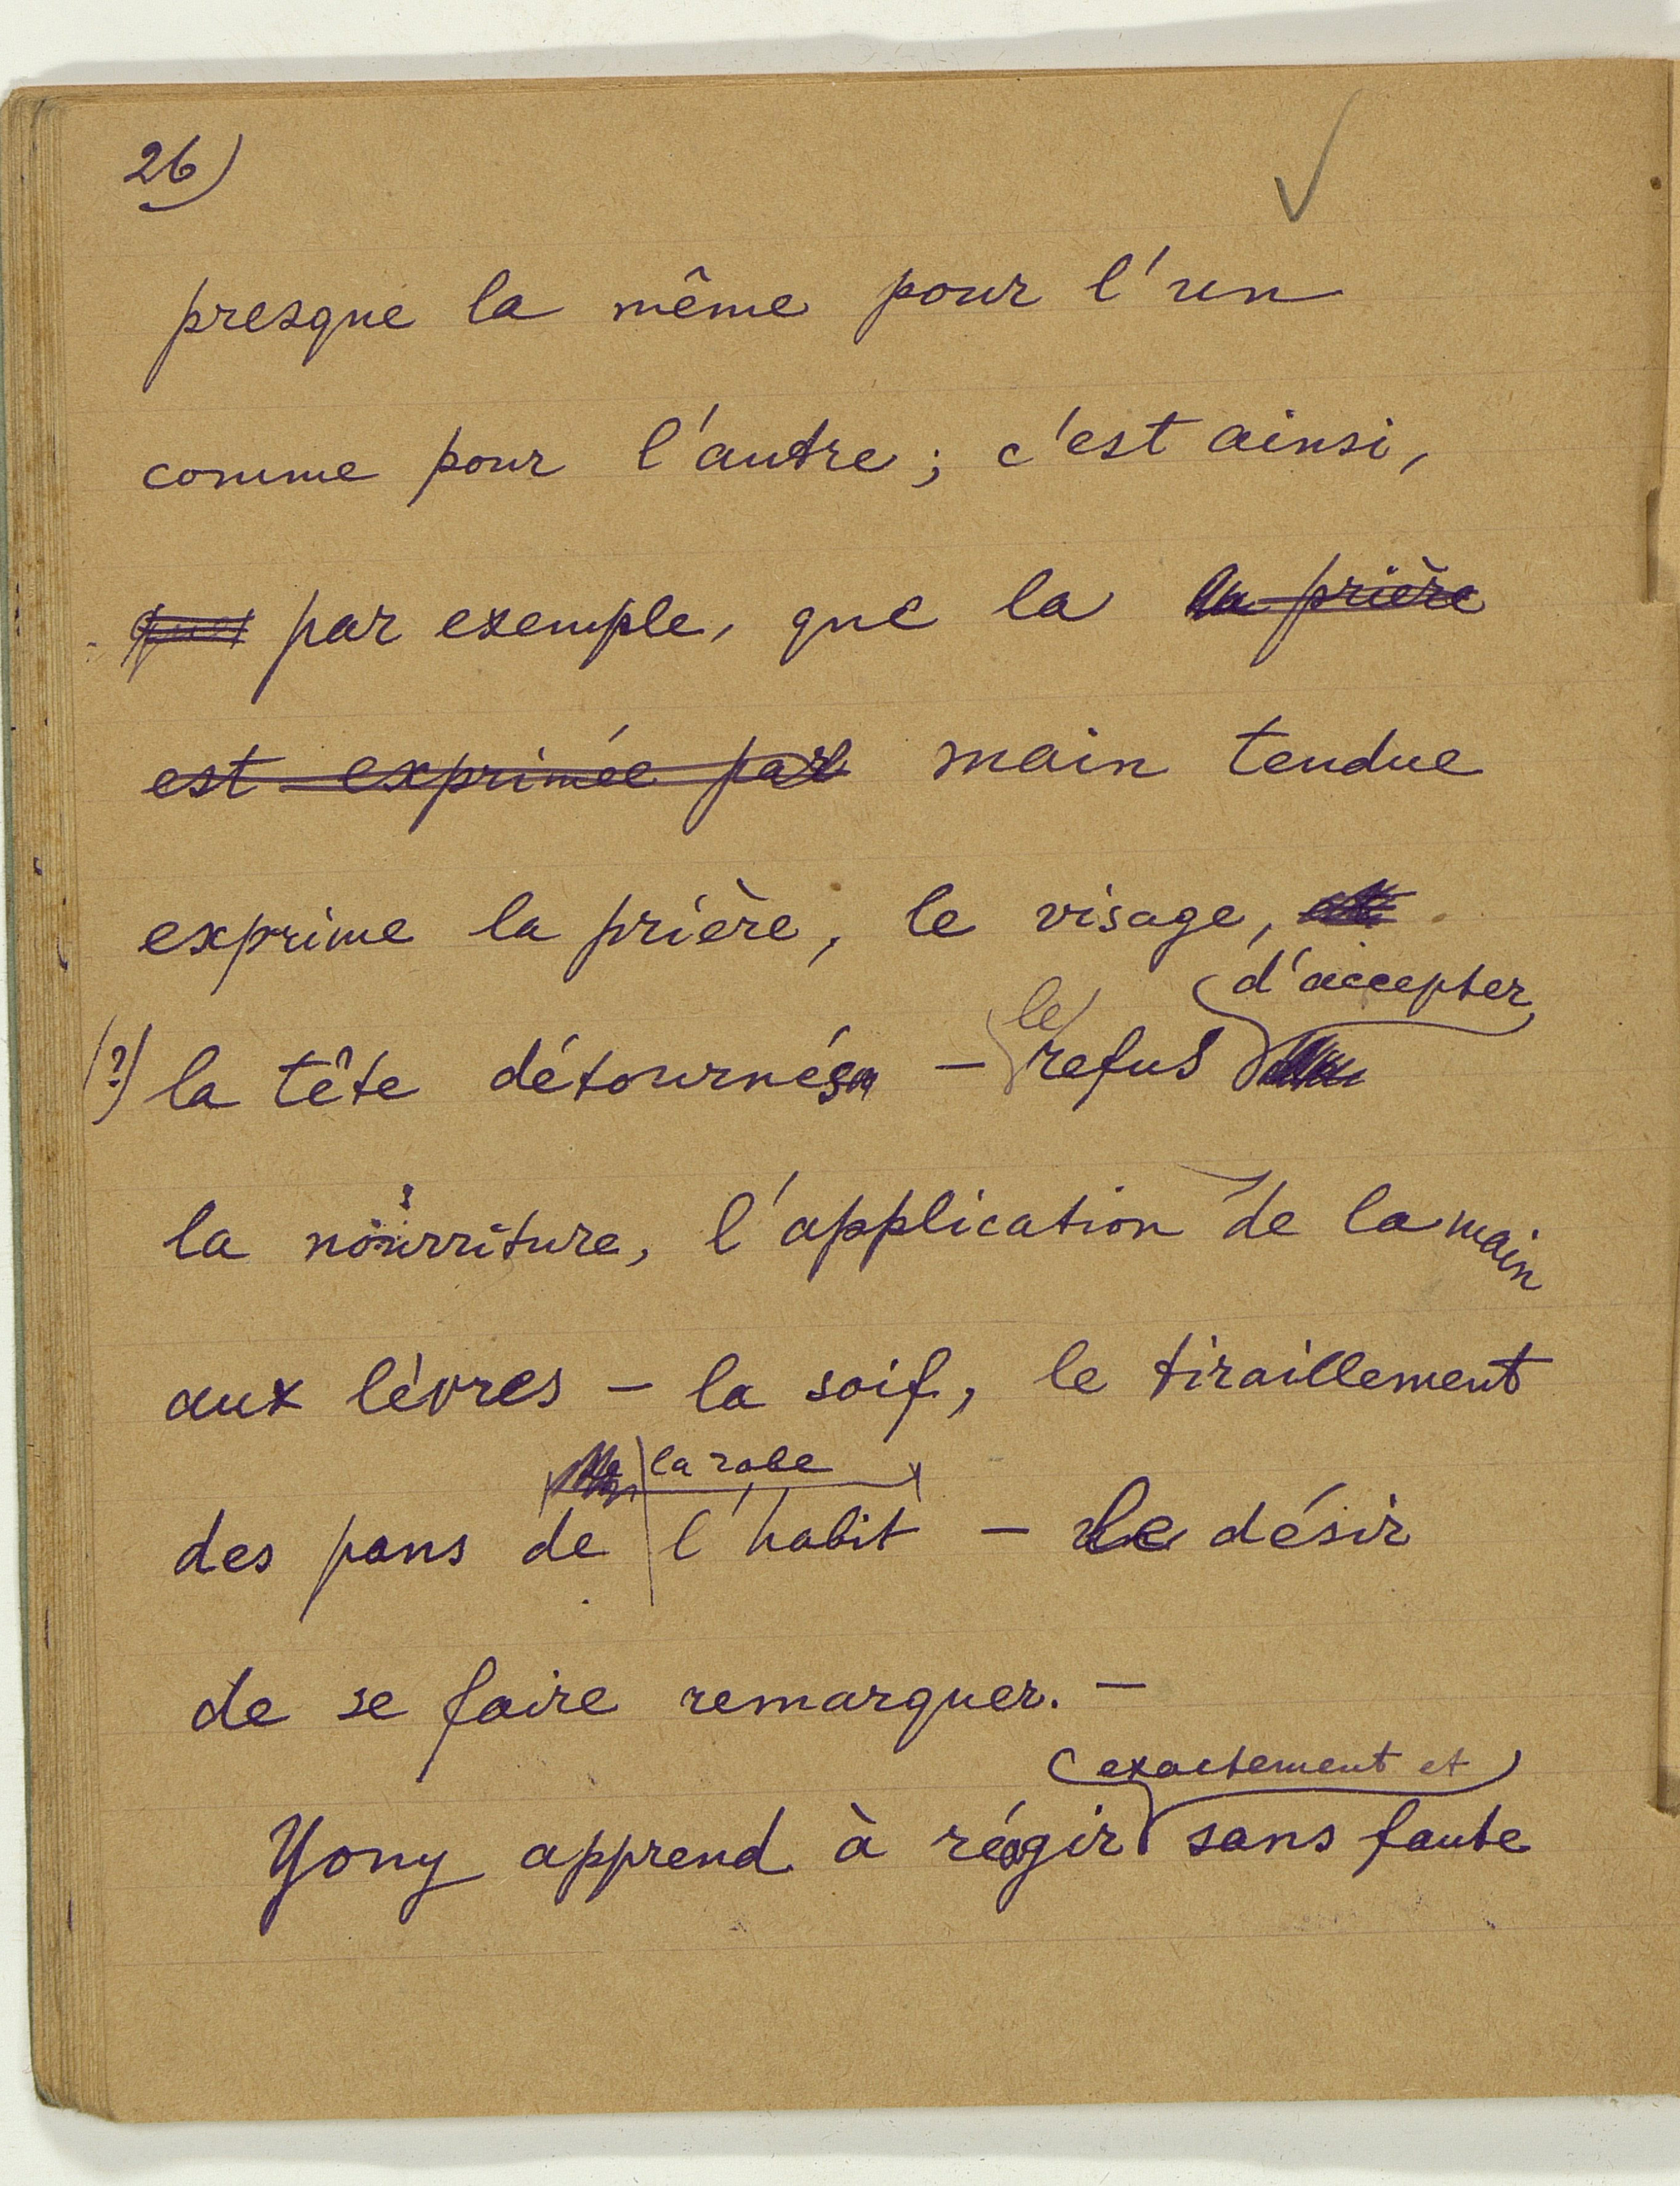 26)
presque la même pour l'un
comme pour l'autre; c'est ainsi,
par exemple, que la la prière
est exprimée par main tendue
exprime la prière, le visage,
d'accepter
(?) la tête détournés – le refus
la nourriture, l'application de la main
aux lèvres – la soif, le tiraillement
la robe
des pans de l'habit – le désir
de se faire remarquer. –
exactement et
Yony apprend à réagir sans faute